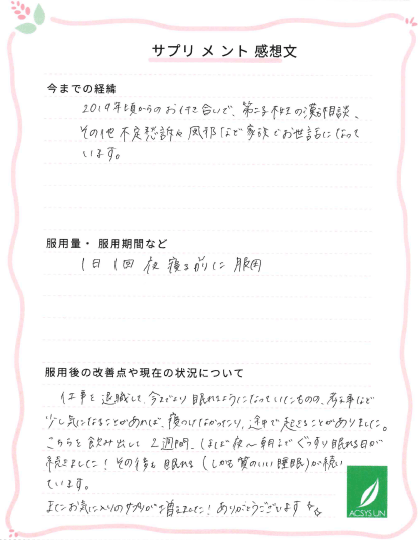 サプリメント感想文
今までの経緯
2019年頃からのお付き合いで、第二子妊娠の漢方相談、
その他不定愁訴や風邪など家族でお世話になって
います。
服用量・服用期間など
1日1回夜寝る前に服用
服用後の改善点や現在の状況について
仕事を退職して、今までより眠れるようになっていたものの、考え事など
少し気になることがあれば、寝つけなかったり、途中で起きることがありました。
こちらを飲み出して2週間、ほぼ夜〜朝までぐっすり眠れる日が
続きました!その後も眠れる(しかも質のいい睡眠)が続い
ています。
またお気に入りのサプリが増えました!ありがとうございます
ACSYS UN